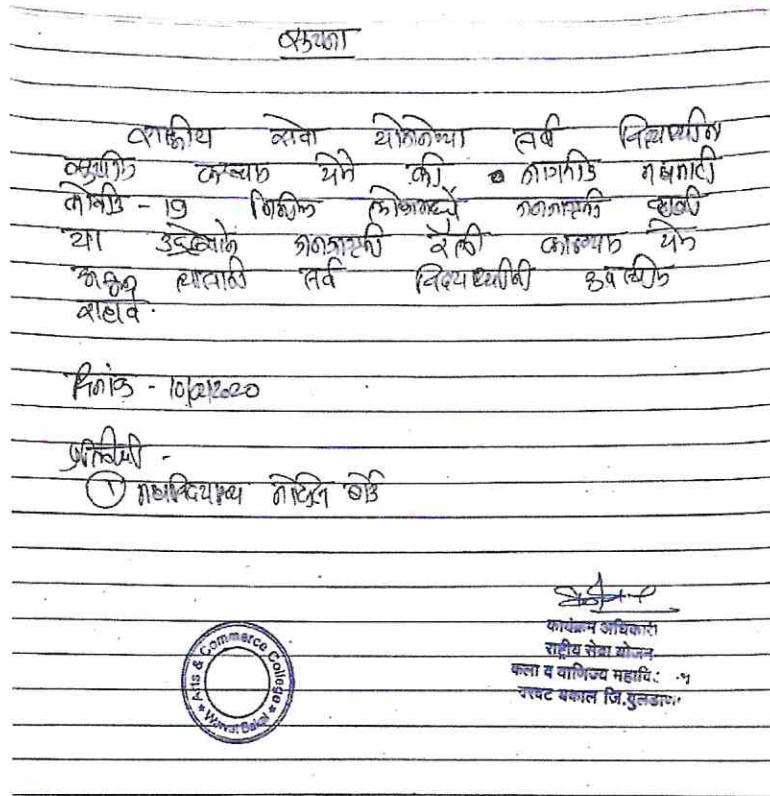 सूचना
राष्ट्रीय सेवा योजनेच्या सर्व विद्यार्थ्यांना
सूचीत करण्यात येते की जागतिक महामारी
कोवीड - 19 निमीत्त लोकामध्ये जनजागृती व्हावी
या उद्देशाने जनजागृती रॅली काढण्यात येत
आहे त्यासाठी सर्व विद्यार्थ्यांनी उपस्थित
राहावे.
दिनांक -
प्रतिलिपी -
① महाविद्यालय नोटीस बोर्ड
कार्यक्रम अधिकारी
राष्ट्रीय सेवा योजना
कला व वाणिज्य महावि
वरवट बकाल जि.बुलडाणा
Arts & Commerce College
★ Warvat Bakal ★